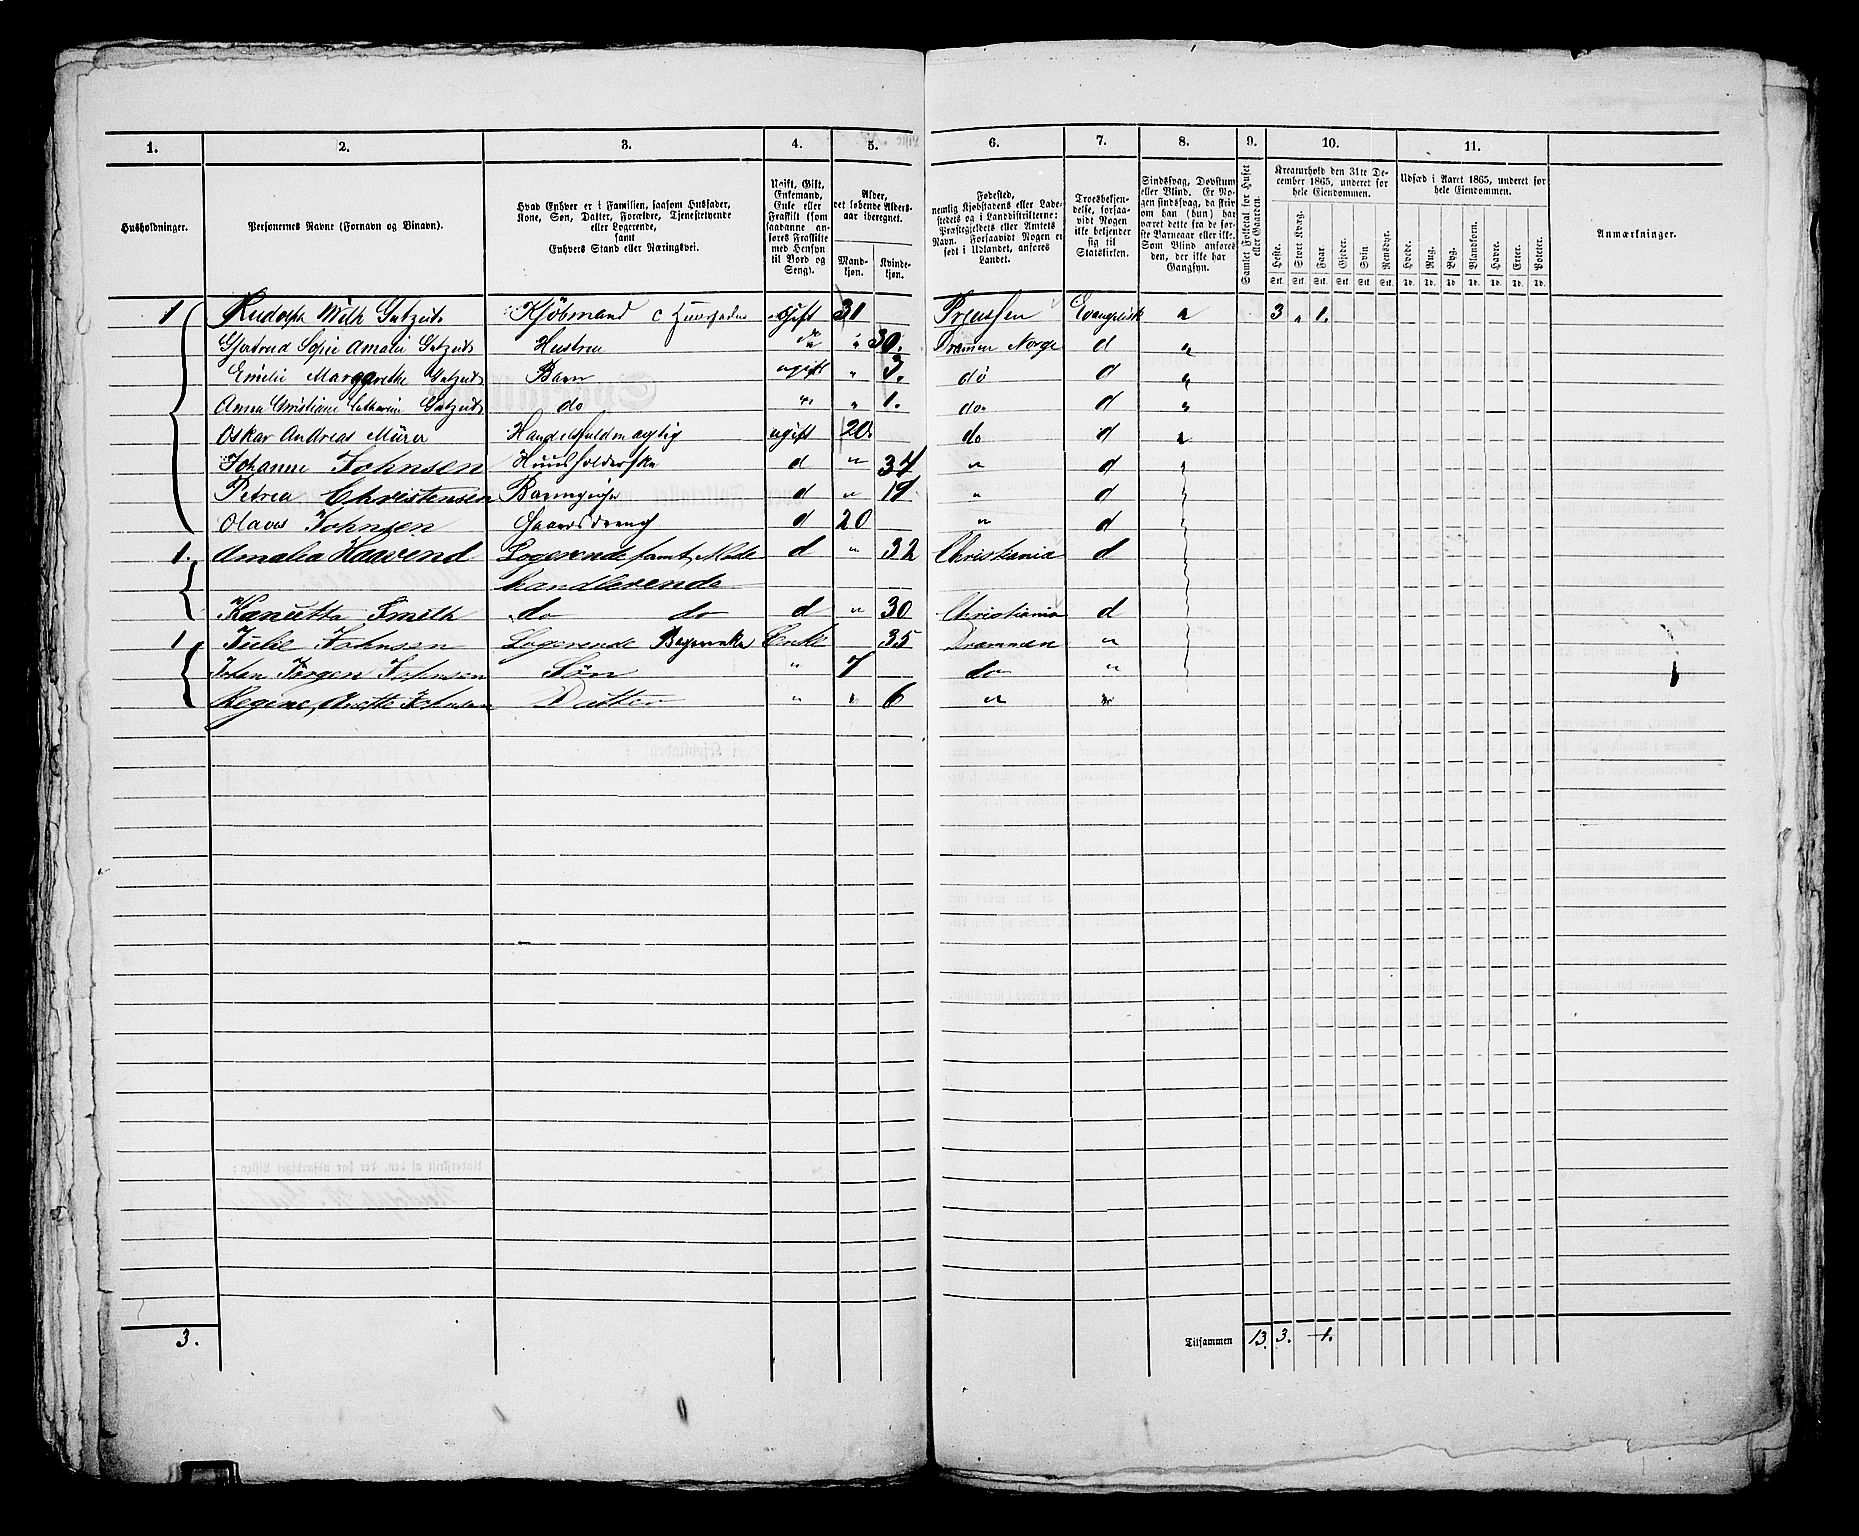 1. 2. 3. 4. 5. 6. 7. 8. 9. 10. 11.
Husholdninger.
Personernes Navne (Fornavn og Binavn).
Hvad Enhver er i Familien, saasom Husfader,
Kone, Søn, Datter, Forældre, Tjenestetyende
eller Logerende,
samt
Enhvers Stand eller Næringsvei.
Ugift, Gift,
Enkemand,
Enke eller
Fraskilt (som
saadanne an-
føres Fraskilte
med Hensyn
til Bord og
Seng).
Alder,
det løbende Alders-
aar iberegnet.
Mand-
kjøn.
Kvinde-
kjøn.
Fødested,
nemlig Kjøbstadens eller Lade-
stedets og i Landdistrikterne:
Præstegjeldets eller Amtets
Navn. Forsaavidt Nogen er
født i Udlandet, anføres
Landet.
Troesbekjen-
delse, forsaa-
vidt Nogen
ikke bekjender
sig til
Statskirken.
Sindssvag, Døvstum
eller Blind. Er No-
gen sindssvag, da skriv
om han (hun) har
været dette fra de før-
ste Barneaar eller ikke.
Som Blind anføres
den, der ikke har
Gangsyn.
Samlet Folketal for Huset
eller Gaarden.
Kreaturhold den 31te De-
cember 1865, underet for
hele Eiendommen.
Heste. Stort Kvæg. Faar. Gjeder. Svin Rensdyr.
Stk. Stk. Stk. Stk. Stk. Stk.
Udsæd i Aaret 1865, underet for
hele Eiendommen.
Hvede. Rug. Byg. Blandkorn. Havre. Erter. Poteter.
Td. Td. Td. Td. Td. Td. Td.
Anmærkninger.
1 Rudolph Wilh Gutzeit Kjöbmand Gift 31 Preussen Evangelisk " 3 " 1.
Gjertrud Sofie Amalie Gutzeit Hustru do " 30. Dramen Norge d "
Emilie Margarethe Gutzeit Barn ugift " 3. do d "
Anna Christiane Catharine Gutzeit do " " 1. do. d "
Oskar Andreas Mürer Handelsfuldmægtig ugift 20. do d "
Johanne Johnsen Huusholderske d " 37 " d "
Petrea Christensen Barnepige d " 19 " d "
Olaves Johnsen Gaardsdreng d 20 " d "
1. Amalia Haavend Logerende samt Mode d " 32 Christiania d
handlerende
Kanutta Smith do do d " 30 Christiania d
1 Julie Johnsen Logerende Enke 35 Drammen "
Johan Jörgen Johnsen Sön " 7 do "
Regine Johnsen Datter " " 6 " "
3. Tilsammen 13. 3. 1.